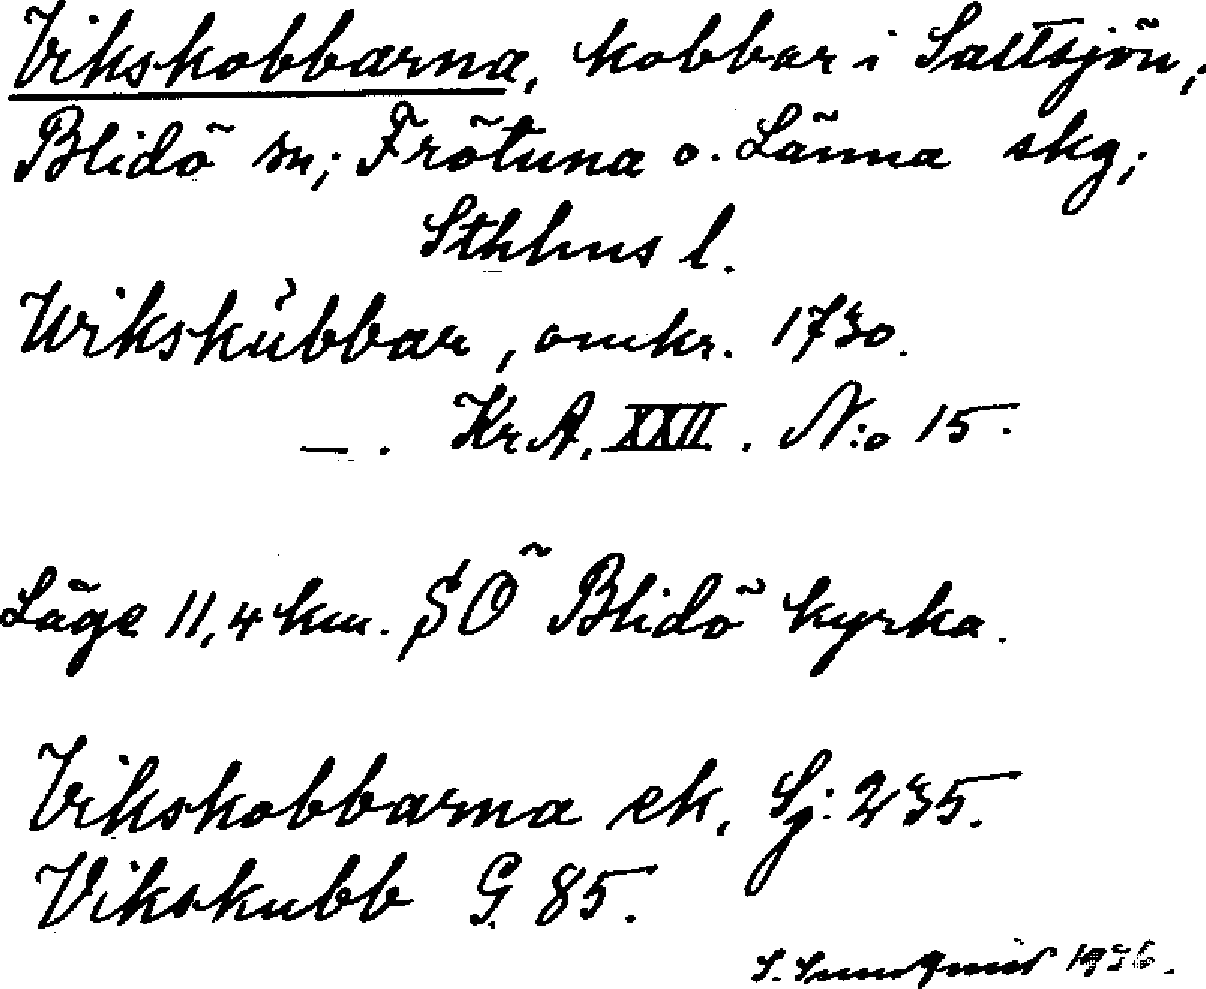 Vikskobbarna, kobbar i Saltsjön,
Blidö sn; Frötuna o. Länna skg;
Sthlms l.
Wikskůbbar, omkr. 1730.
—. KrA. XXII. N:o 15.
Läge 11,4 km. SÖ Blidö kyrka.
Vikskobbarna ek. Sj: 235.
Vikskubb G. 85.
S. Sundqvist 1936.